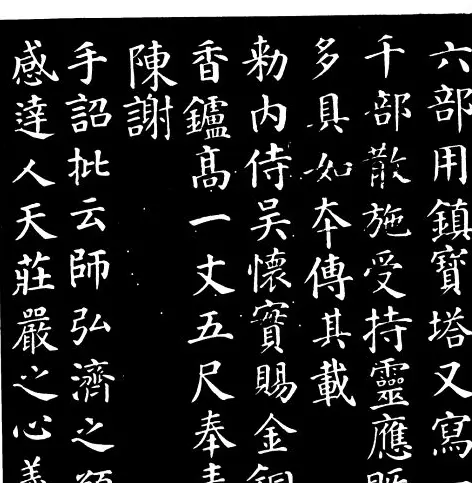 六部用鎮寶塔又寫一
千部散施受持靈應既
多具如夲傳其載
勑内侍吳懷實賜金銅
香鑪髙一丈五尺奉表
陳謝
手詔批云師弘濟之願
感達人天莊嚴之心義